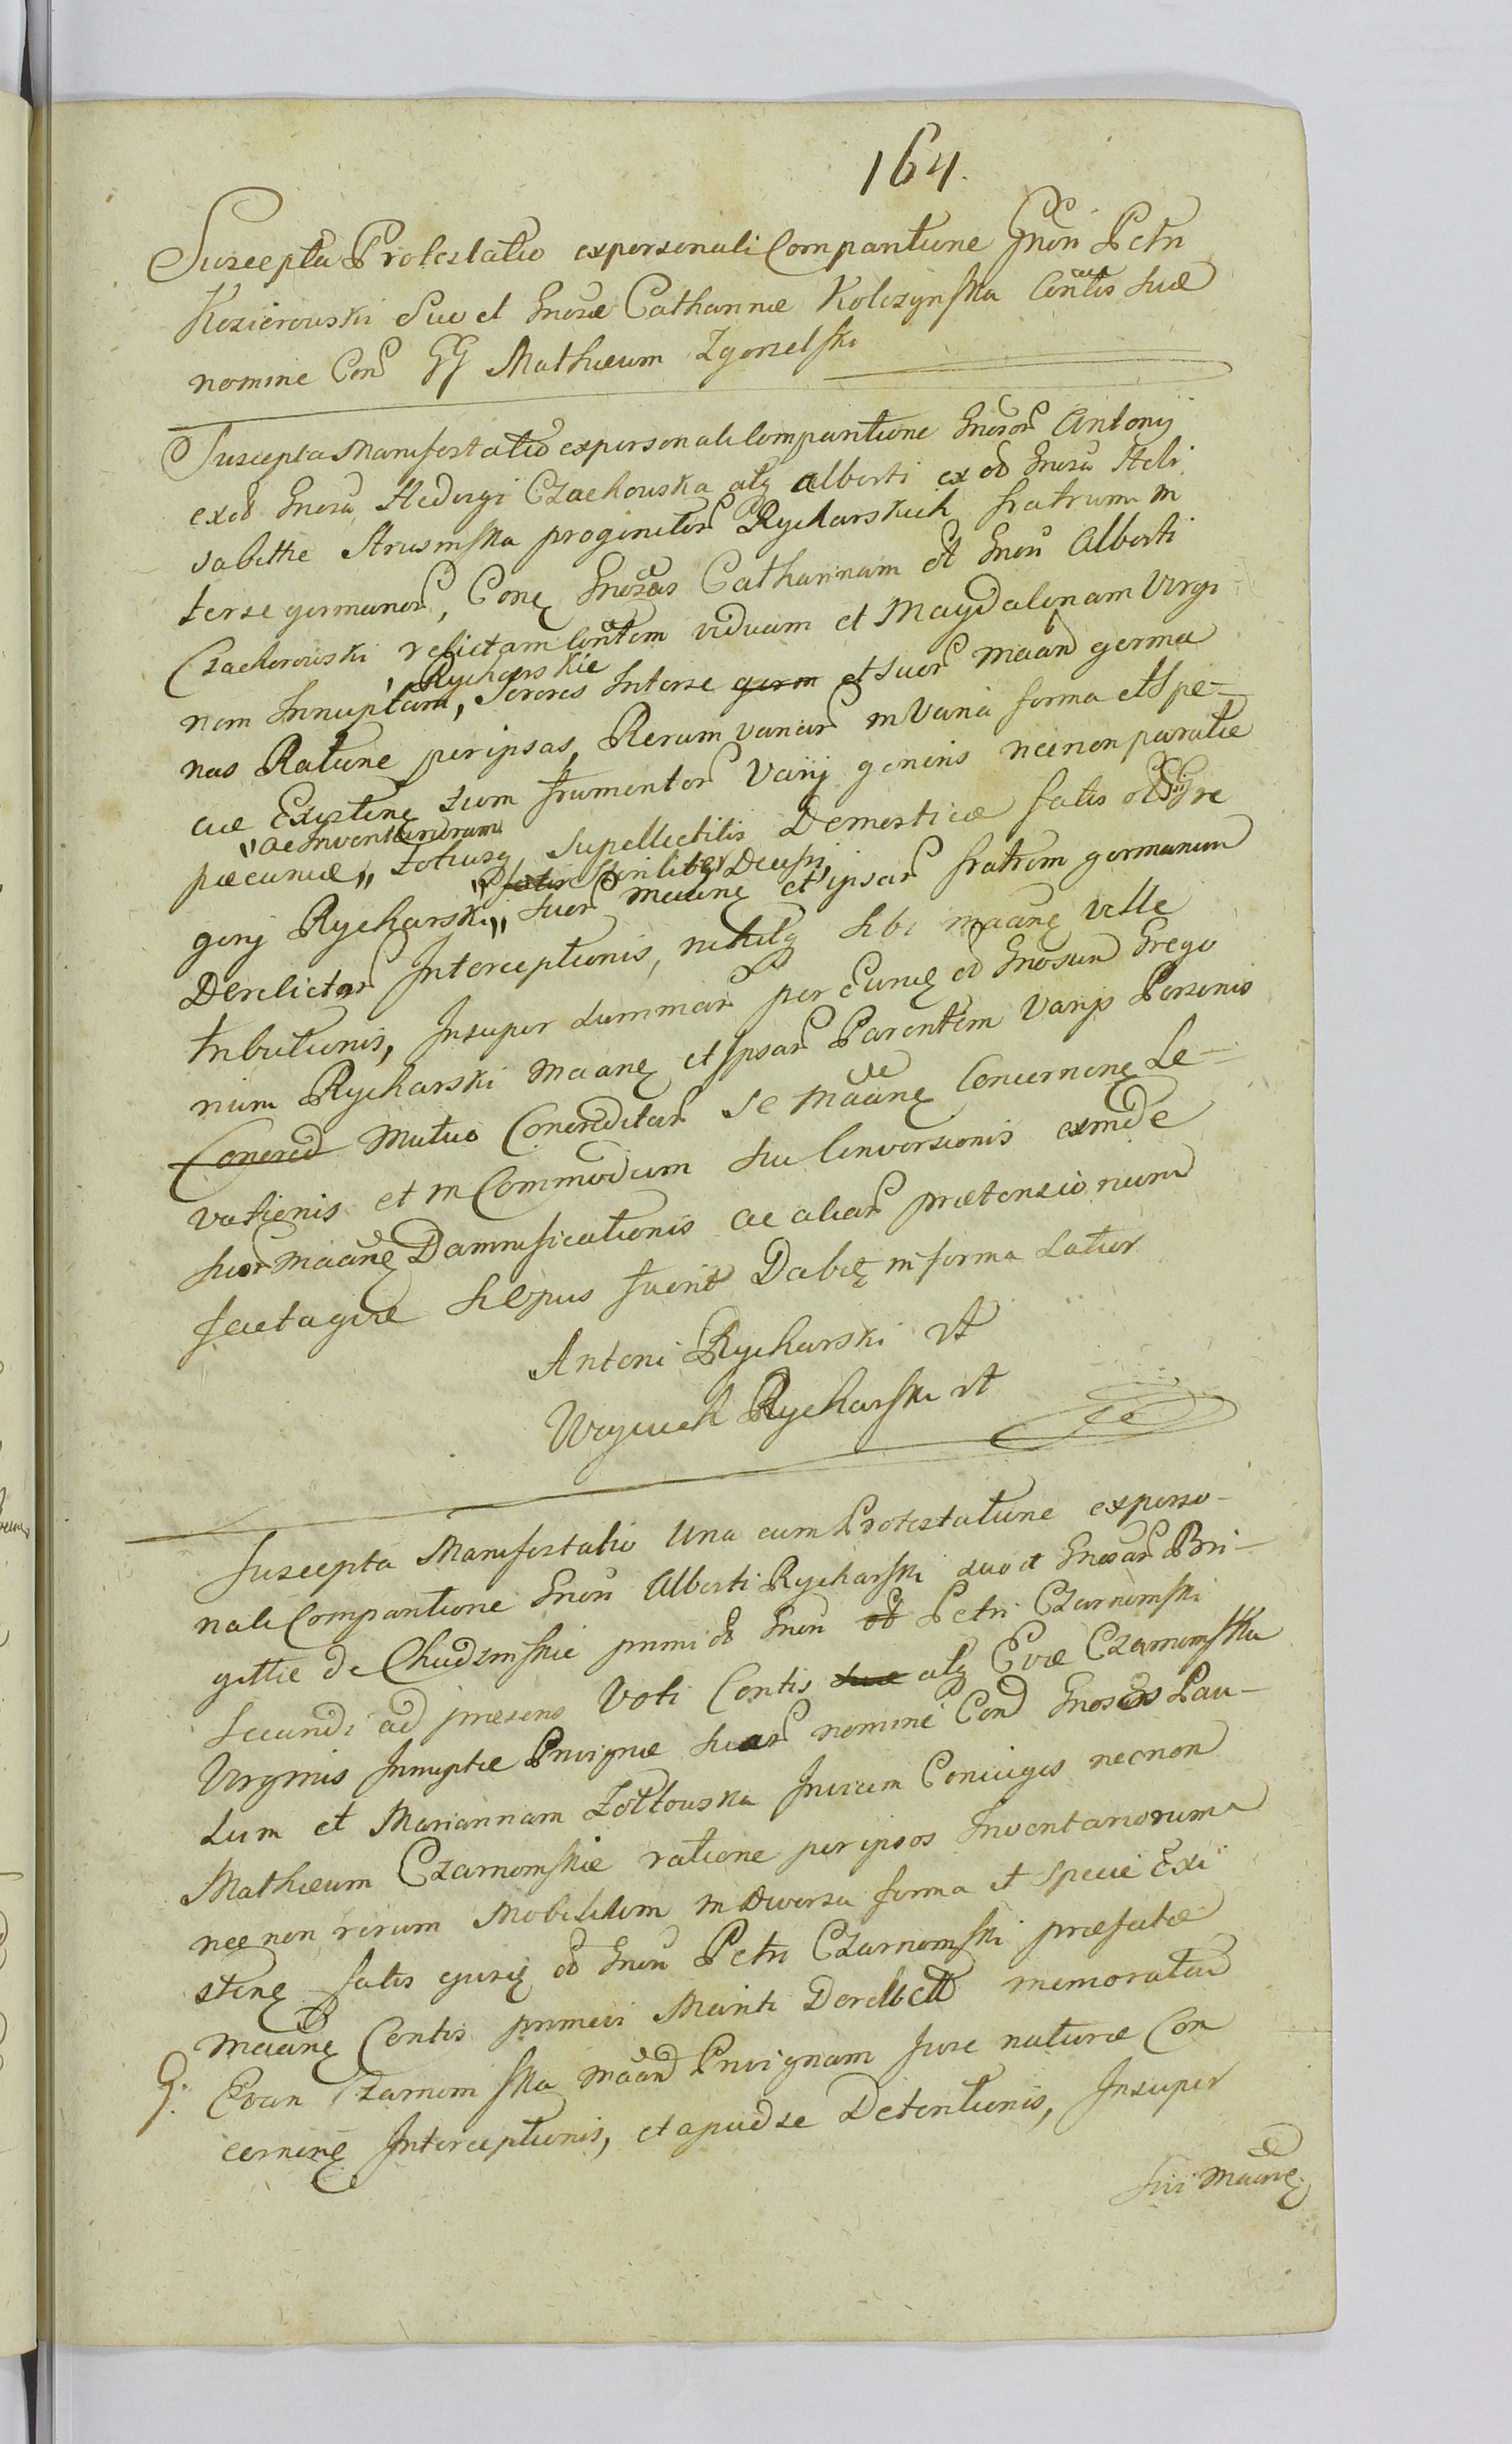 164.
Suscepta Protestatio ex personali Comparitione Gnosi Petri
Kozierowski Suo et Gnosae Catharinae Kolczynska Contis suae
nomine Con GG Mathaeum Zgorzelski
Suscepta Manifestatio ex personali Comparitione Gnosor Antonij
ex od Gnosa Hedvigi Czachowska atq Alberti ex od Gnosa Heli
sabethe Strusinska progenitor Rycharskich fratrum in
ter se germanor, Conq Gnosas Catharinam od Gnosi Alberti
Czachorowski relictam Contem viduam et Magdalenam Virgi
nem Innuptam, Rycharskie Sorores Inter se germ et suor maan germa
nas Ratione per ipsas Rerum variar in Varia forma et Spe-
cie Existenq tum frumentor Varij generis nec non paratae
paecuniae,, ac Inventariorum ,, totiusq, Supellectilis Domesticae fatis ol G Gre
gorij Rycharski,, Steriliter Decessi,, suor maanq et ipsar fratrem germanum
Derelictar Interceptionis, nihilq sibi maanq velle
tributionis, Insuper summar per Eunq od Gnosum Grego
rium Rycharski maanq et Ipsar Parentem Varijs Personis
Concred Mutuo Concreditar se maanq Concernenq Le-
vationis et in Commodum sui Conversionis exinde
suor maanq Damnificationis ac aliar praetensionum
fact agere si opus fuerit Dabiq in forma Latior
Antoni Rycharski rt
Woyciech Rycharski rt
Suscepta Manifestatio Una cum Protestatione ex perso-
nali Comparitione Gnosi Alberti Rycharski suo et Gnosar Bri-
gittae de Chudzinskie primi od Gnosi od Petri Czarnomski
secundi ad praesens Voti Contis suae atq Evae Czarnomska
Virginis Innuptae Privignae suar nomine Con Gnosos Pau-
lum et Mariannam Zołtowska Invicem Coniuges necnon
Mathaeum Czarnomskie ratione per ipsos Inventariorum
nec non rerum Mobilium in Diversa forma et Specie Exi
stenq fatis ejusq od Gnosi Petri Czarnomski praefatae
maanq Contis primevi Mariti Derelict memoratam
Evam Czarnomska maan Privignam Jure naturae Con
cernenq Interceptionis, et apud se Detentionis, Insuper
sui maanq